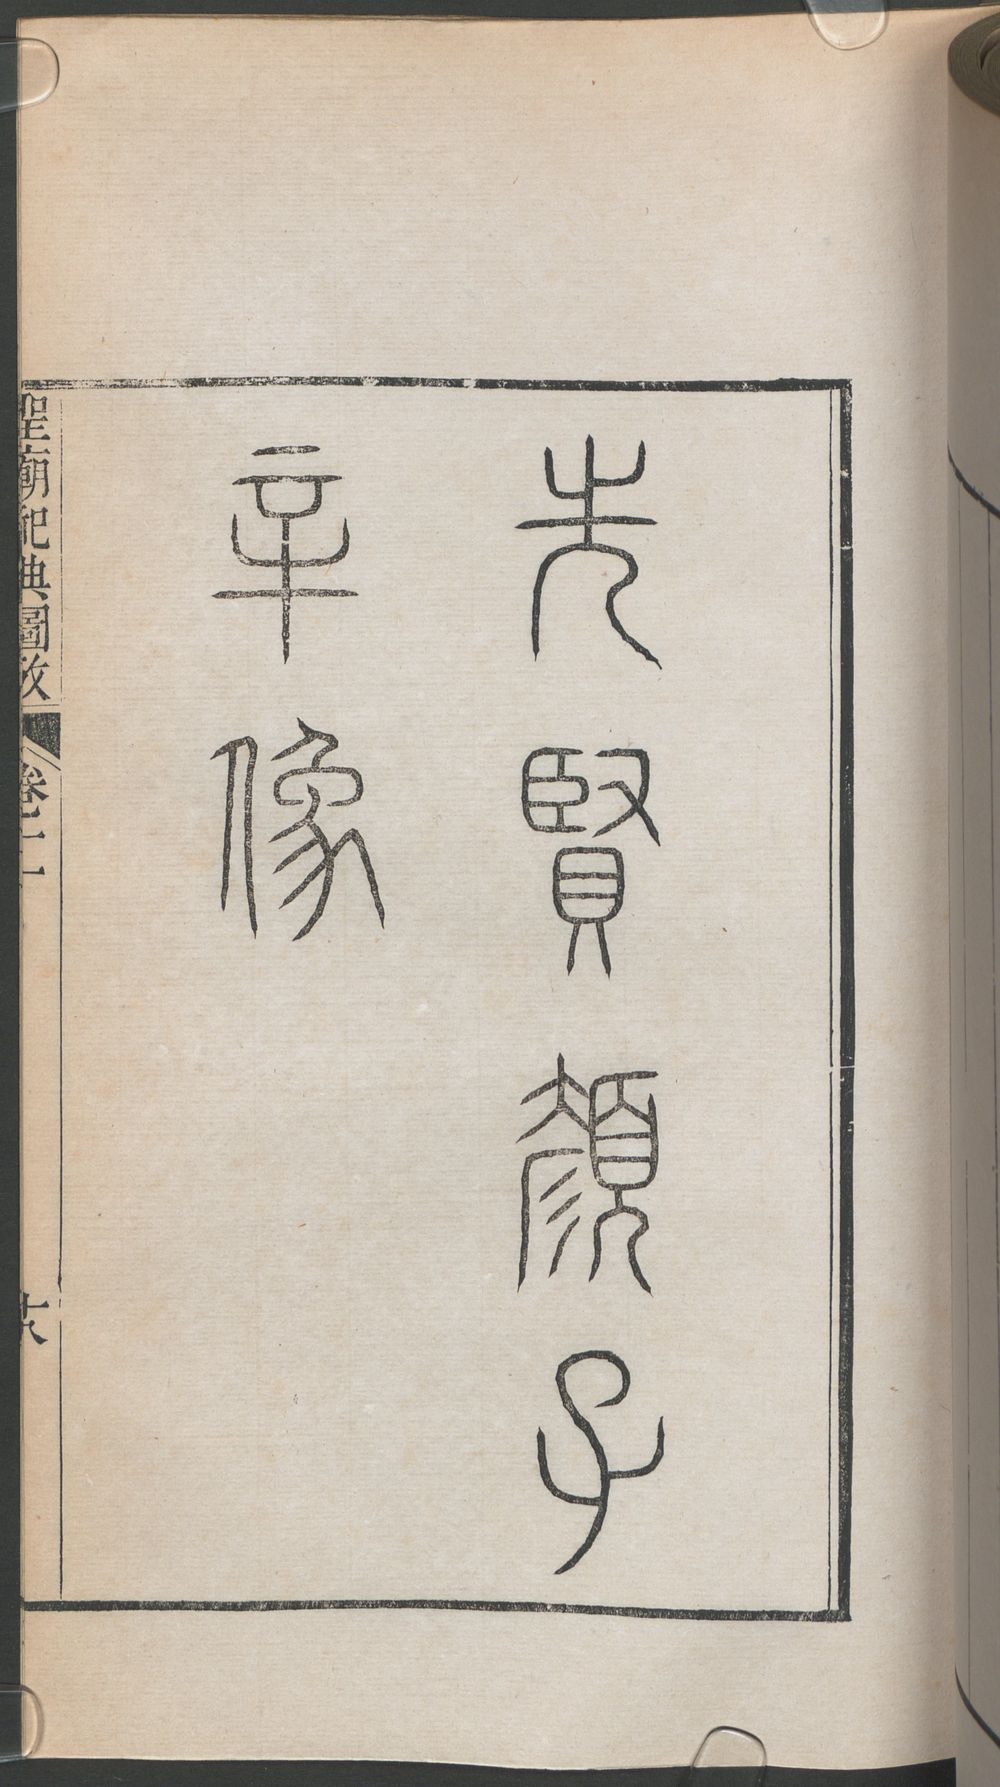 先賢顏子
辛像
聖廟祀典圖攷
卷二
十八